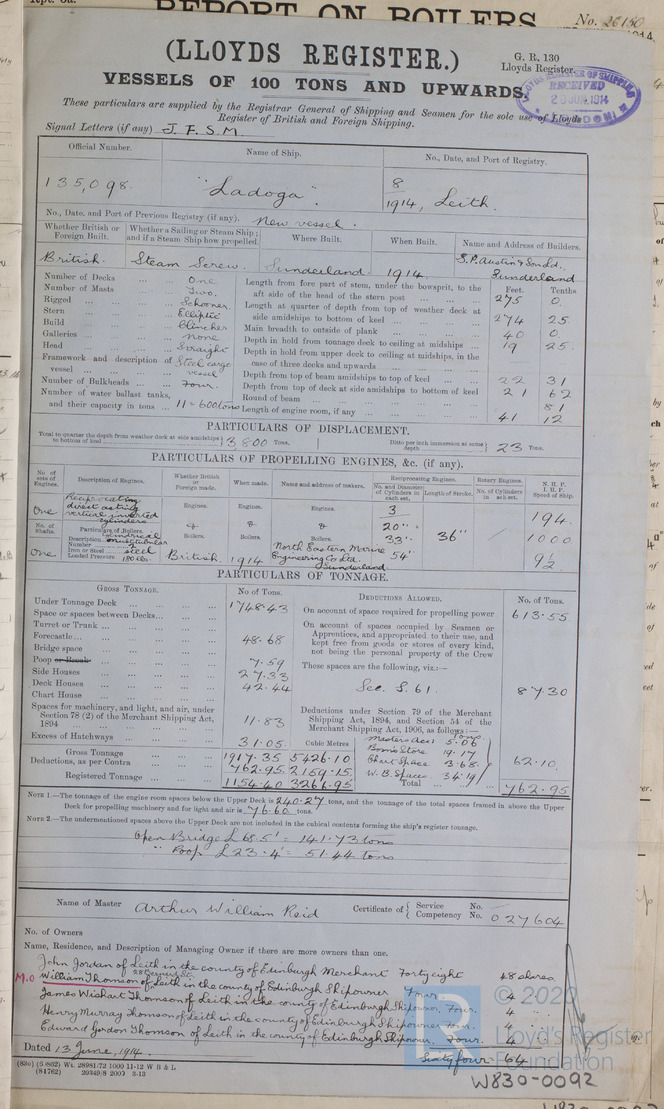 REPORT ON BOILERS
No. 26150
(LLOYDS REGISTER.)
G. R. 130
Lloyds Register.
VESSELS OF 100 TONS AND UPWARDS.
LLOYD'S REGISTER OF SHIPPING
RECEIVED
JUN. 1914
LONDON
These particulars are supplied by the Registrar General of Shipping and Seamen for the sole use of Lloyds
Register of British and Foreign Shipping.
Signal Letters (if any) J. F. S. M.
Official Number. Name of Ship. No., Date, and Port of Registry.
135,098. "Ladoga". 8
1914, Leith.
No., Date, and Port of Previous Registry (if any). New vessel.
Whether British or Foreign Built. Whether a Sailing or Steam Ship; and if a Steam Ship how propelled. Where Built. When Built. Name and Address of Builders.
British. Steam Screw Sunderland. 1914 S.P. Austin & Son Ld. Sunderland
Number of Decks One
Number of Masts Two.
Rigged Schooner.
Stern Elliptic
Build Clincher
Galleries None
Head Straight
Framework and description of vessel Steel cargo vessel
Number of Bulkheads Four.
Number of water ballast tanks, and their capacity in tons 11 = 600 tons
Feet. Tenths
Length from fore part of stem, under the bowsprit, to the aft side of the head of the stern post 275 0
Length at quarter of depth from top of weather deck at side amidships to bottom of keel 274 25
Main breadth to outside of plank 40 0
Depth in hold from tonnage deck to ceiling at midships 19 25
Depth in hold from upper deck to ceiling at midships, in the case of three decks and upwards
Depth from top of beam amidships to top of keel 22 31
Depth from top of deck at side amidships to bottom of keel 21 62
Round of beam 81
Length of engine room, if any 41 12
PARTICULARS OF DISPLACEMENT.
Total to quarter the depth from weather deck at side amidships to bottom of keel 3,800 Tons. Ditto per inch immersion at same depth 23 Tons.
PARTICULARS OF PROPELLING ENGINES, &c. (if any).
No. of sets of Engines. Description of Engines. Whether British or Foreign made. When made. Name and address of makers. Reciprocating Engines. Rotary Engines. N. H. P. I. H. P. Speed of Ship.
No. and Diameter of Cylinders in each set. Length of Stroke. No. of Cylinders in each set.
One Reciprocating direct acting vertical inverted cylinders Engines. Engines. Engines. 3 194
No. of Shafts. Particulars of Boilers. & & & 20" 36" 1000
Description Cylindrical multitubular Boilers. Boilers. Boilers. 33" 9½
Number
Iron or Steel Steel
Loaded Pressure 180 lbs.
One British. 1914 North Eastern Marine Engineering Co Ltd. Sunderland 54"
PARTICULARS OF TONNAGE.
GROSS TONNAGE. No. of Tons. DEDUCTIONS ALLOWED. No. of Tons.
Under Tonnage Deck 1748.43
Space or spaces between Decks
Turret or Trunk
Forecastle 48.68
Bridge space
Poop or Break 7.59
Side Houses 27.33
Deck Houses 42.44
Chart House
Spaces for machinery, and light, and air, under Section 78 (2) of the Merchant Shipping Act, 1894 11.83
Excess of Hatchways 31.05 Cubic Metres
Gross Tonnage 1917.35 5426.10
Deductions, as per Contra 762.95 2159.15
Registered Tonnage 1154.40 3266.95
On account of space required for propelling power 613.55
On account of spaces occupied by Seamen or Apprentices, and appropriated to their use, and kept free from goods or stores of every kind, not being the personal property of the Crew
These spaces are the following, viz.:—
Sec. S. 61. 87.30
Deductions under Section 79 of the Merchant Shipping Act, 1894, and Section 54 of the Merchant Shipping Act, 1906, as follows:—
Tons.
Masters Acc. 5.06
Bosn's Store 19.17
Chart Space 3.68
W. B. Space 34.19
62.10
Total 762.95
NOTE 1.—The tonnage of the engine room spaces below the Upper Deck is 240.27 tons, and the tonnage of the total spaces framed in above the Upper
Deck for propelling machinery and for light and air is 76.60 tons.
NOTE 2.—The undermentioned spaces above the Upper Deck are not included in the cubical contents forming the ship's register tonnage.
Open Bridge L 68.5' = 141.73 tons
" Poop L 23.4' = 51.44 tons
Name of Master Arthur William Reid Certificate of Service No. Competency No. 027604
No. of Owners
Name, Residence, and Description of Managing Owner if there are more owners than one.
John Jordan of Leith in the county of Edinburgh Merchant Forty eight 48 shares
28 Bernard St.
M.O William Thomson of Leith in the county of Edinburgh Shipowner Four 4 "
James Wishart Thomson of Leith in the county of Edinburgh Shipowner Four. 4 "
Henry Murray Thomson of Leith in the county of Edinburgh Shipowner Four. 4 "
Edward Gordon Thomson of Leith in the county of Edinburgh Shipowner. Four. 4 "
Sixty four 64
Dated 13 June, 1914.
(830) (5/862) Wt. 28981/72 1000 11-12 W B & L
(81762) 20349/8 2000 3-13
© 2020
Lloyd's Register
Foundation
W830-0092